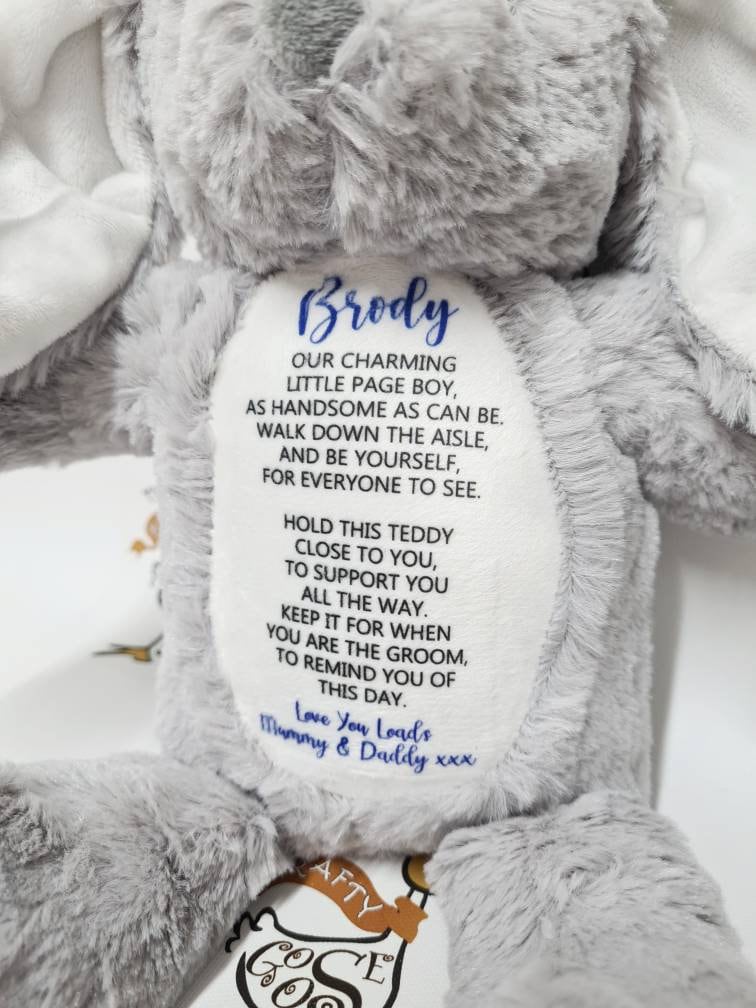 Brody
OUR CHARMING
LITTLE PAGE BOY,
AS HANDSOME AS CAN BE.
WALK DOWN THE AISLE,
AND BE YOURSELF,
FOR EVERYONE TO SEE.
HOLD THIS TEDDY
CLOSE TO YOU,
TO SUPPORT YOU
ALL THE WAY.
KEEP IT FOR WHEN
YOU ARE THE GROOM,
TO REMIND YOU OF
THIS DAY.
Love You Loads
Mummy & Daddy xxx
GOOSE